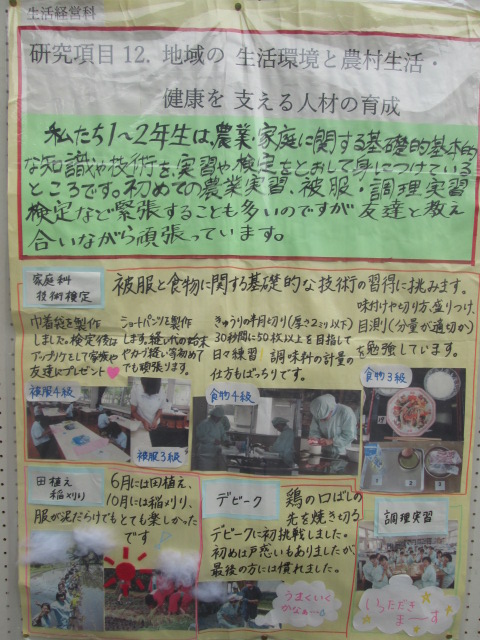 生活経営科
研究項目12. 地域の 生活環境と農村生活・
健康を 支える人材の育成
私たち1〜2年生は、農業・家庭に関する基礎的基本的
な知識や技術を、実習や検定をとおして身につけている
ところです。初めての農業実習、被服・調理実習
検定など緊張することも多いのですが友達と教え
合いながら頑張っています。
家庭科
技術検定
被服と食物に関する基礎的な技術の習得に挑みます。
巾着袋を製作
しました。検定後は
アップリケとして家族や
友達にプレゼント
ショートパンツを製作
します。縫い代の始末
やカーブ縫い等初めて
でも頑張ります。
きゅうりの半月切り(厚さ2ミリ以下)
30秒間に50枚以上を目指して
日々練習 調味料の計量の
仕方もばっちりです。
味付けや切り方、盛りつけ、
目測り(分量が適切か)
を勉強しています。
被服4級
被服3級
食物4級
食物3級
田植え
稲刈り
6月には田植え、
10月には稲刈り、
服が泥だらけでもとても楽しかった
です
デビーク
鶏の口ばしの
先を焼き切る
デビークに初挑戦しました。
初めは戸惑いもありましたが、
最後の方には慣れました。
うまくいく
かなぁ…
調理実習
いただき
まーす